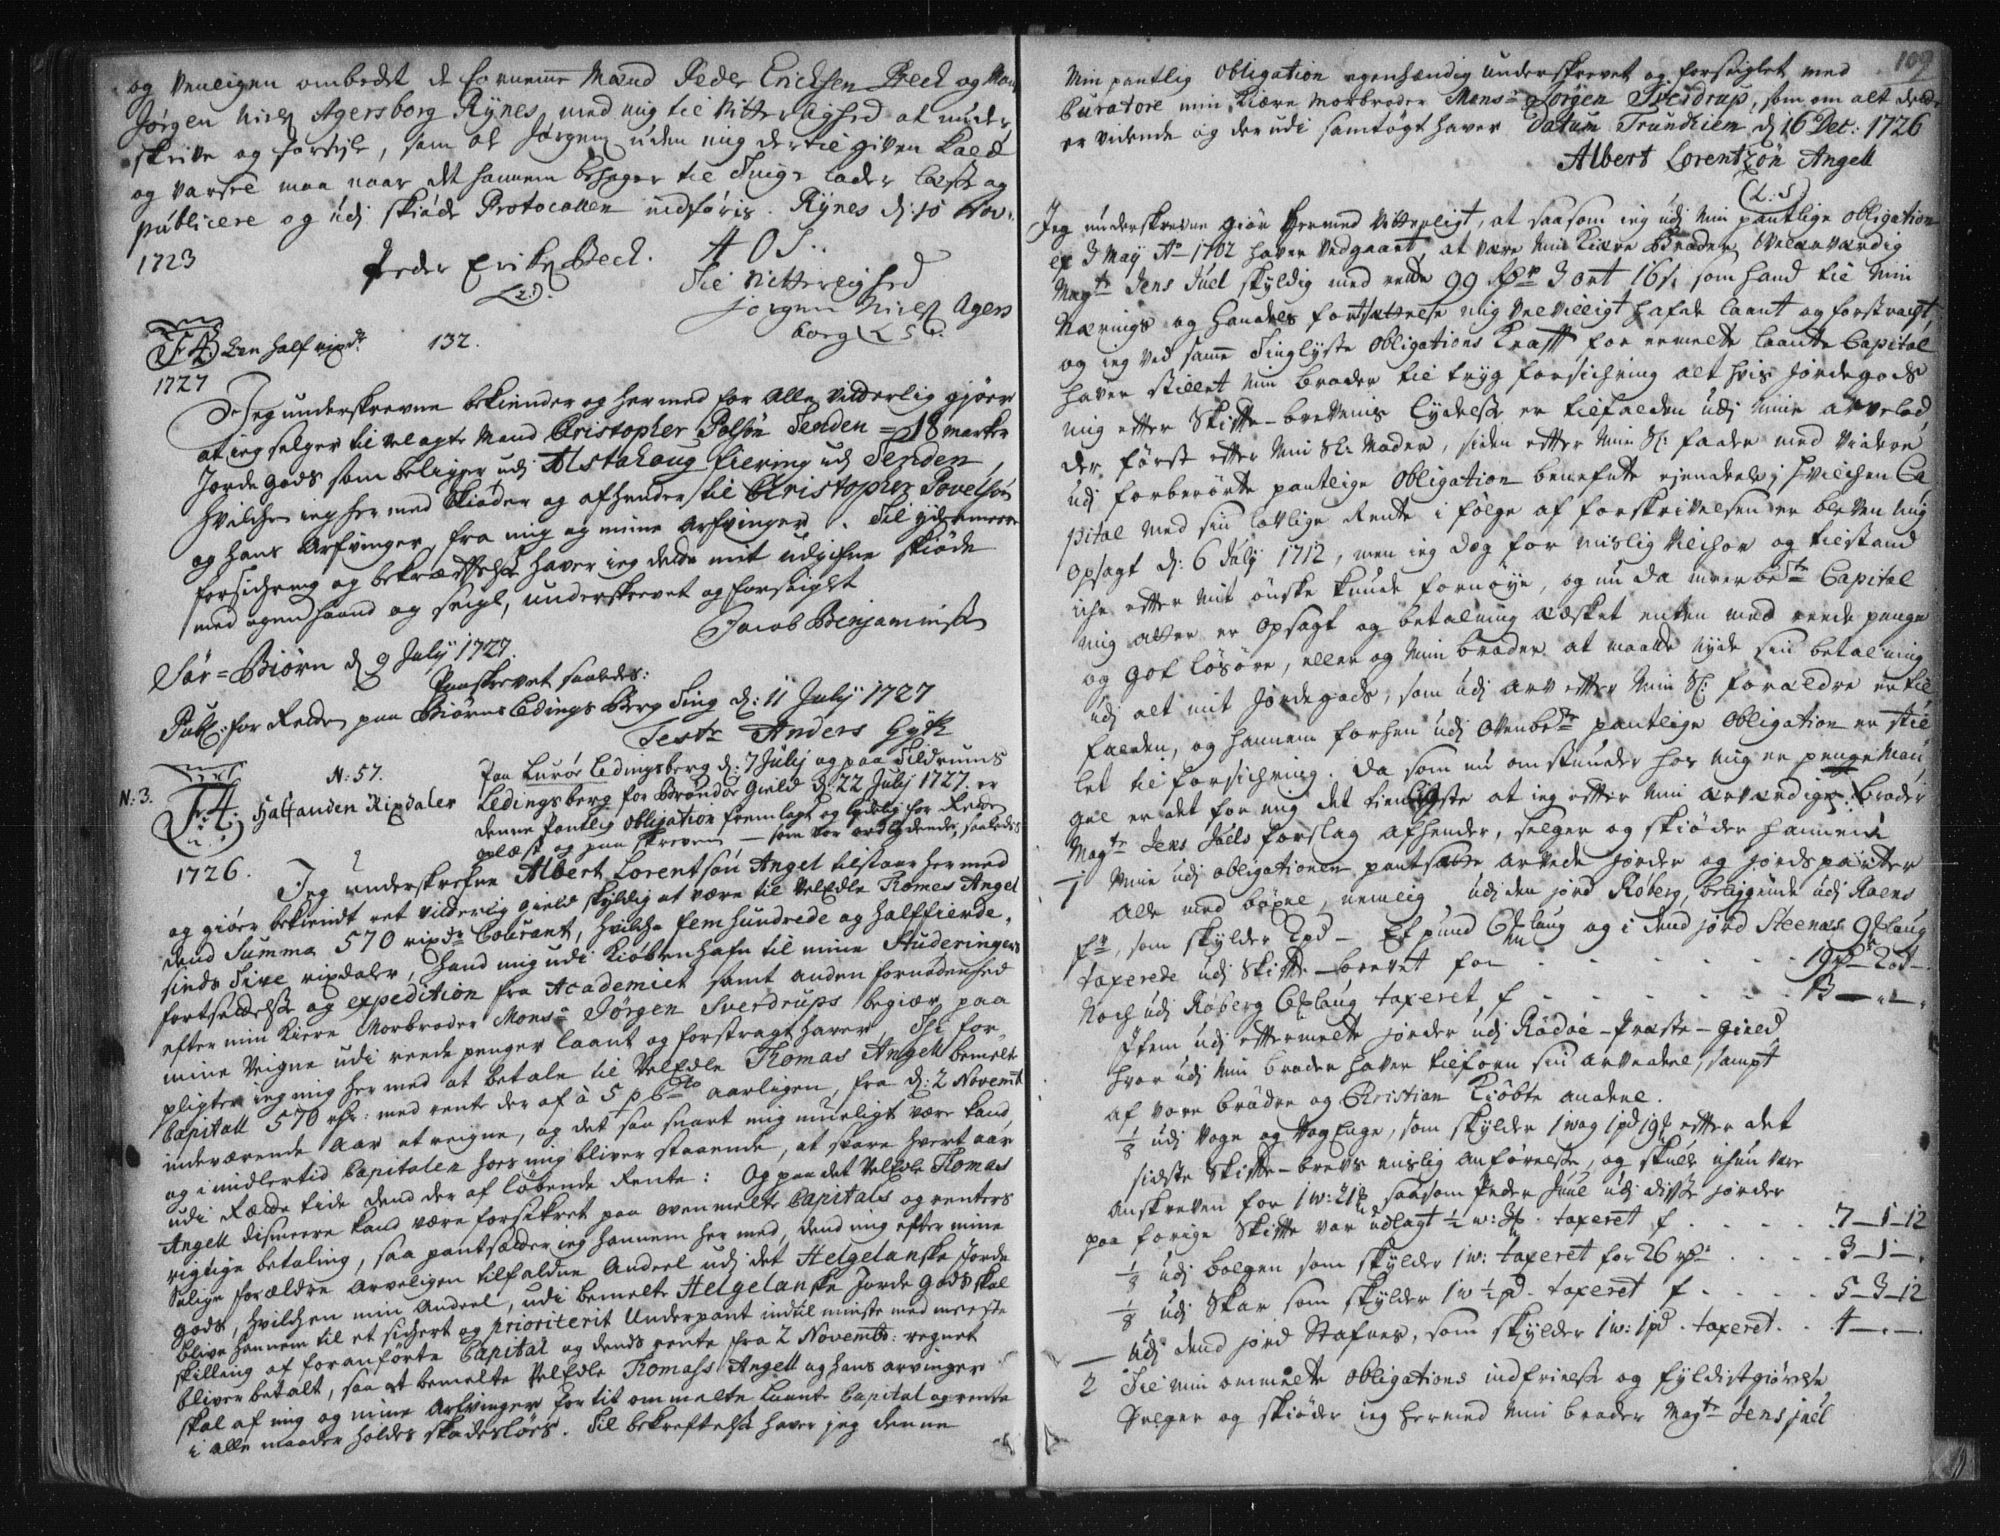 og venligen ombedet de fornemme Mænd Peder Ericksen Beck og
Jørgen Nielß Agersborg Rynes, med mig til Vitterlighed at under
skrive og forseyle, som og Jørgen uden mig dertil given Kald
og varsel maa naar det hannem behager til Tinge lader læse og
publicere og udj skiøde Protocollen indføris. Rynes d: 10 Nov:
1723
Peder Erikß Beck. A O S.
L.S. Til Vitterlighed
Jørgen Nielß Agers
borg L S.
F 4. Een half rixd. 132.
1727
Jeg underskrevne bekiender og hermed for Alle vitterlig gjør
at jeg selger til velagte Mand Christopher Polsøn Tenden = 18 marker
Jordegods som beligger udj Alstahaug fierring udj Tenden,
hvilche jeg hermed skiøder og afhender til Christopher Povelsøn
og hans Arfvinger, fra mig og mine Arfvinger. Til ydermeere
forsichring og bekræfftelse haver jeg dette mit udgifne skiøde
med egen haand og seigl, underskrevet og forseiglt
Jacob Benjaminsß
Sør=Biørn d 9 July 1727.
Paaskrevet saaledes:
Publ: for Retten paa Biørns Ledings Berg Ting d: 11 July 1727
Test: Anders Gytz
N: 57. Paa Lurøe Ledingsberg d: 7 Julij og paa Tildrums
N: 3. F 4. Halfanden Rixdaler Ledingsberg for Brønøe Gield d: 22 July 1727. er
denne Pantlig obligation fremlagt og lydelig for Retten
oplæst og paaskreven — som var ordlydende, saaledes
1726. Jeg underskrefne Albert Lorentsøn Angel tilstaar hermed
og giør bekiendt ret vitterlig gield skyldig at være til VelEdle Thomes Angel
dend Summa 570 rixdr Courant, hvilche femhundrede og halffierde-
sinds Tive rixdaler, hand mig udi Kiøbenhafn til mine Studeringers
fortsættelse og expedition fra Academiet samt anden fornødenhed
efter min Kiere Morbroder Monsr Jørgen Sverdrups begiær paa
mine Veigne udi reede penger laant og forstragt haver, Thi for-
pligter jeg mig hermed at betale til VelEdle Thomas Angell bemelte
Capitall 570 rdr: med rente der af à 5 p Cto aarligen, fra d: 2 Novembr
indeværende Aar at reigne, og det saa snart mig mueligt være kand,
og imidlertid Capitalen hos mig bliver staaende, at svare hvert aar
udi Rætte tide dend der af løbende Rente: Og paa det VelEdle Thomas
Angell dismeere kand være forsikret paa ovenmelte Capitals og renters
rigtige betaling, saa pantsætter jeg hannem hermed, dend mig efter mine
Salige forældre Arveligen tilfaldne Andeel udj det Helgelanske Jorde
gods, hvilchen min Andeel, udi bemelte Helgelanske Jorde Gods skal
blive hannem til et sichert og prioriterit Underpant indtil minste med meeste
skilling af foranførte Capital og dends rente fra 2 Novembr: regnet
bliver betalt, saa at bemelte VelEdle Thomass Angell og hans arvinger
skal af mig og mine Arfvinger for tit ommelte Laante Capital og rente
i alle maader holdes skadesløs. Til bekreftelse haver jeg denne
109
Min pantlig Obligation egenhændig underskrevet og forseiglet med
Curatore min Kiære Morbroder Monsr Jørgen Sverdrup, som om alt dette
er vidende og der udi samtøgt haver Datum Trundhiem d 16 Dec: 1726
Albert Lorentzøn Angell
(L:S)
Jeg underskrevne giør hermed Vitterligt, at saasom jeg udj Min pantlige Obligation
af 3 May Ao 1702 haver vedgaaet at være Min Kiære Broder Velærværdig
Magr Jens Juel skyldig med rente 99 rdr 3 ort 16 s. som hand til Min
Nærings og Handels fortsættelse mig velvilligt hafde laant og forstragt,
og jeg ved samme Tinglyste Obligations Krafft for ermelte laante Capital
haver stillet Min broder til tryg forsichring alt hvis Jordegods
mig efter Skifte-brevenis Lydelse er tilfalden udj min arvelod
der, først efter Min Sl: Moder, siden efter Min Sl: fader med videre
udj forberørte pantlige Obligation benefnte ejendeele; hvilchen Ca
pital med sin lovlige Rente i følge af forskrivelsen er bleven mig
opsagt d: 6 July 1712, men jeg dog for mislig Vilchor og tilstand
iche efter mit ønske kunde fornøye, og nu da meerbete Capital
mig atter er opsagt og betalning æsket enten med reede penge
og got løsøre, eller og Min broder at maatte nyde sin betalning
udj alt mit Jordegods, som udj arv etter Min Sl: forældre er til
falden, og hannem forhen udj ovenbete pantlige Obligation er stil
let til forsichring. Da som nu omstunder hos mig er penge Man
gel er det for mig det tienligste at jeg efter Min ærværdige Hr: Broder
Magr Jens Juels forslag afhender, selger og skiøder hannem
1 Mine udj obligationen pantsatte arvede Jorder og Jordsparter
Alle med bøxel, nemlig, udj den Jord Røberg, beliggende udj Ræns
fr, som skylder 2pd — Et pund 6 laug og i dend Jord Steenæs 9 laug
taxerede udj Skifte-brevet for - - - - - 19 — 2 ort —.
Noch udj Røberg 6 laug taxeret f - - - - - 13 — „ —.
Item udj eftermelte Jorder udj Rødøe-Præste-gield,
hvor udj Min broder haver tilforn sin arvedeel, sampt
af vore brødre og Christian Kiøbte andeele.
1/8 udj Vogn og VogEnge, som skylder 1 wog 1 pd 19 efter det
sidste Skifte-brevs mislig anførelse, og skulle ichun være
anskreven for 1 w: 21 saasom Peder Juul udj disse Jorder
paa forige Skifte var udlagt 1/2 w: taxeret f. . . . . 7—1—12
1/8 udj bolgen som skylder 1 w: taxeret for 26 rdr . . . 3—1—.
1/8 udj Skar som skylder 1 w 1/2 pd. taxeret f. . . . . 5—3—12
— udj dend Jord Stafnes, som skylder 1 w: 1 pd. taxeret. . 4 —.—.
2 Til min ommelte Obligations indfrielse og fyldistgiørelse
Selger og skiøder jeg hermed Min broder Magr Jens Juel